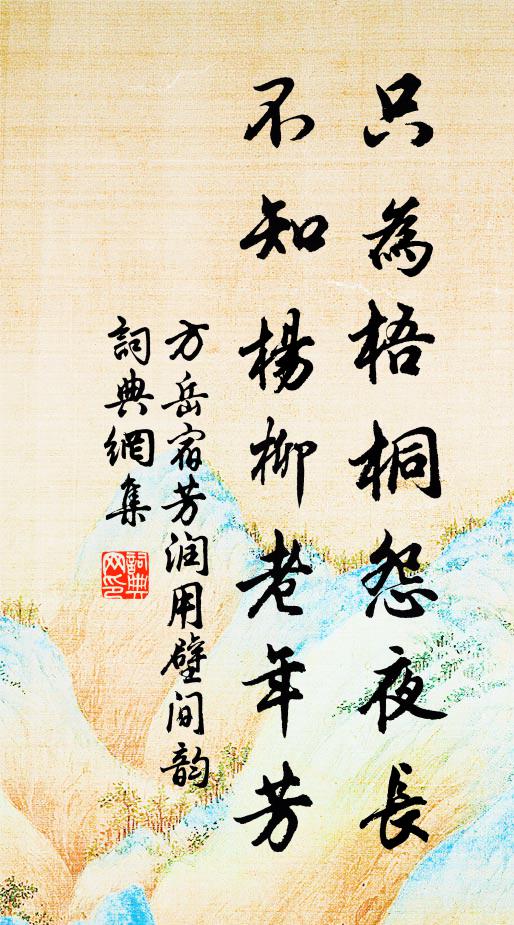 只為梧桐怨夜長
不知楊柳老年芳
方岳宿芳润用壁间韵
詞典網集
詞典網印